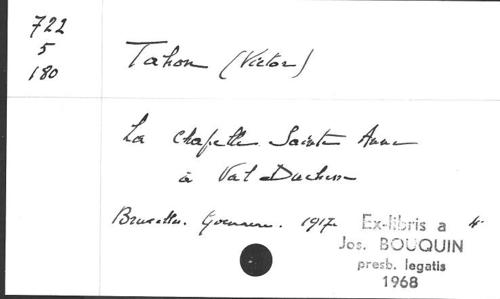 722
5
180
Tahon (Victor)
La Chapelle Sainte Anne
à Val Duchesse
Bruxelles. Goemaere. 1917
Ex-libris a
Jos. BOUQUIN
presb. legatis
1968